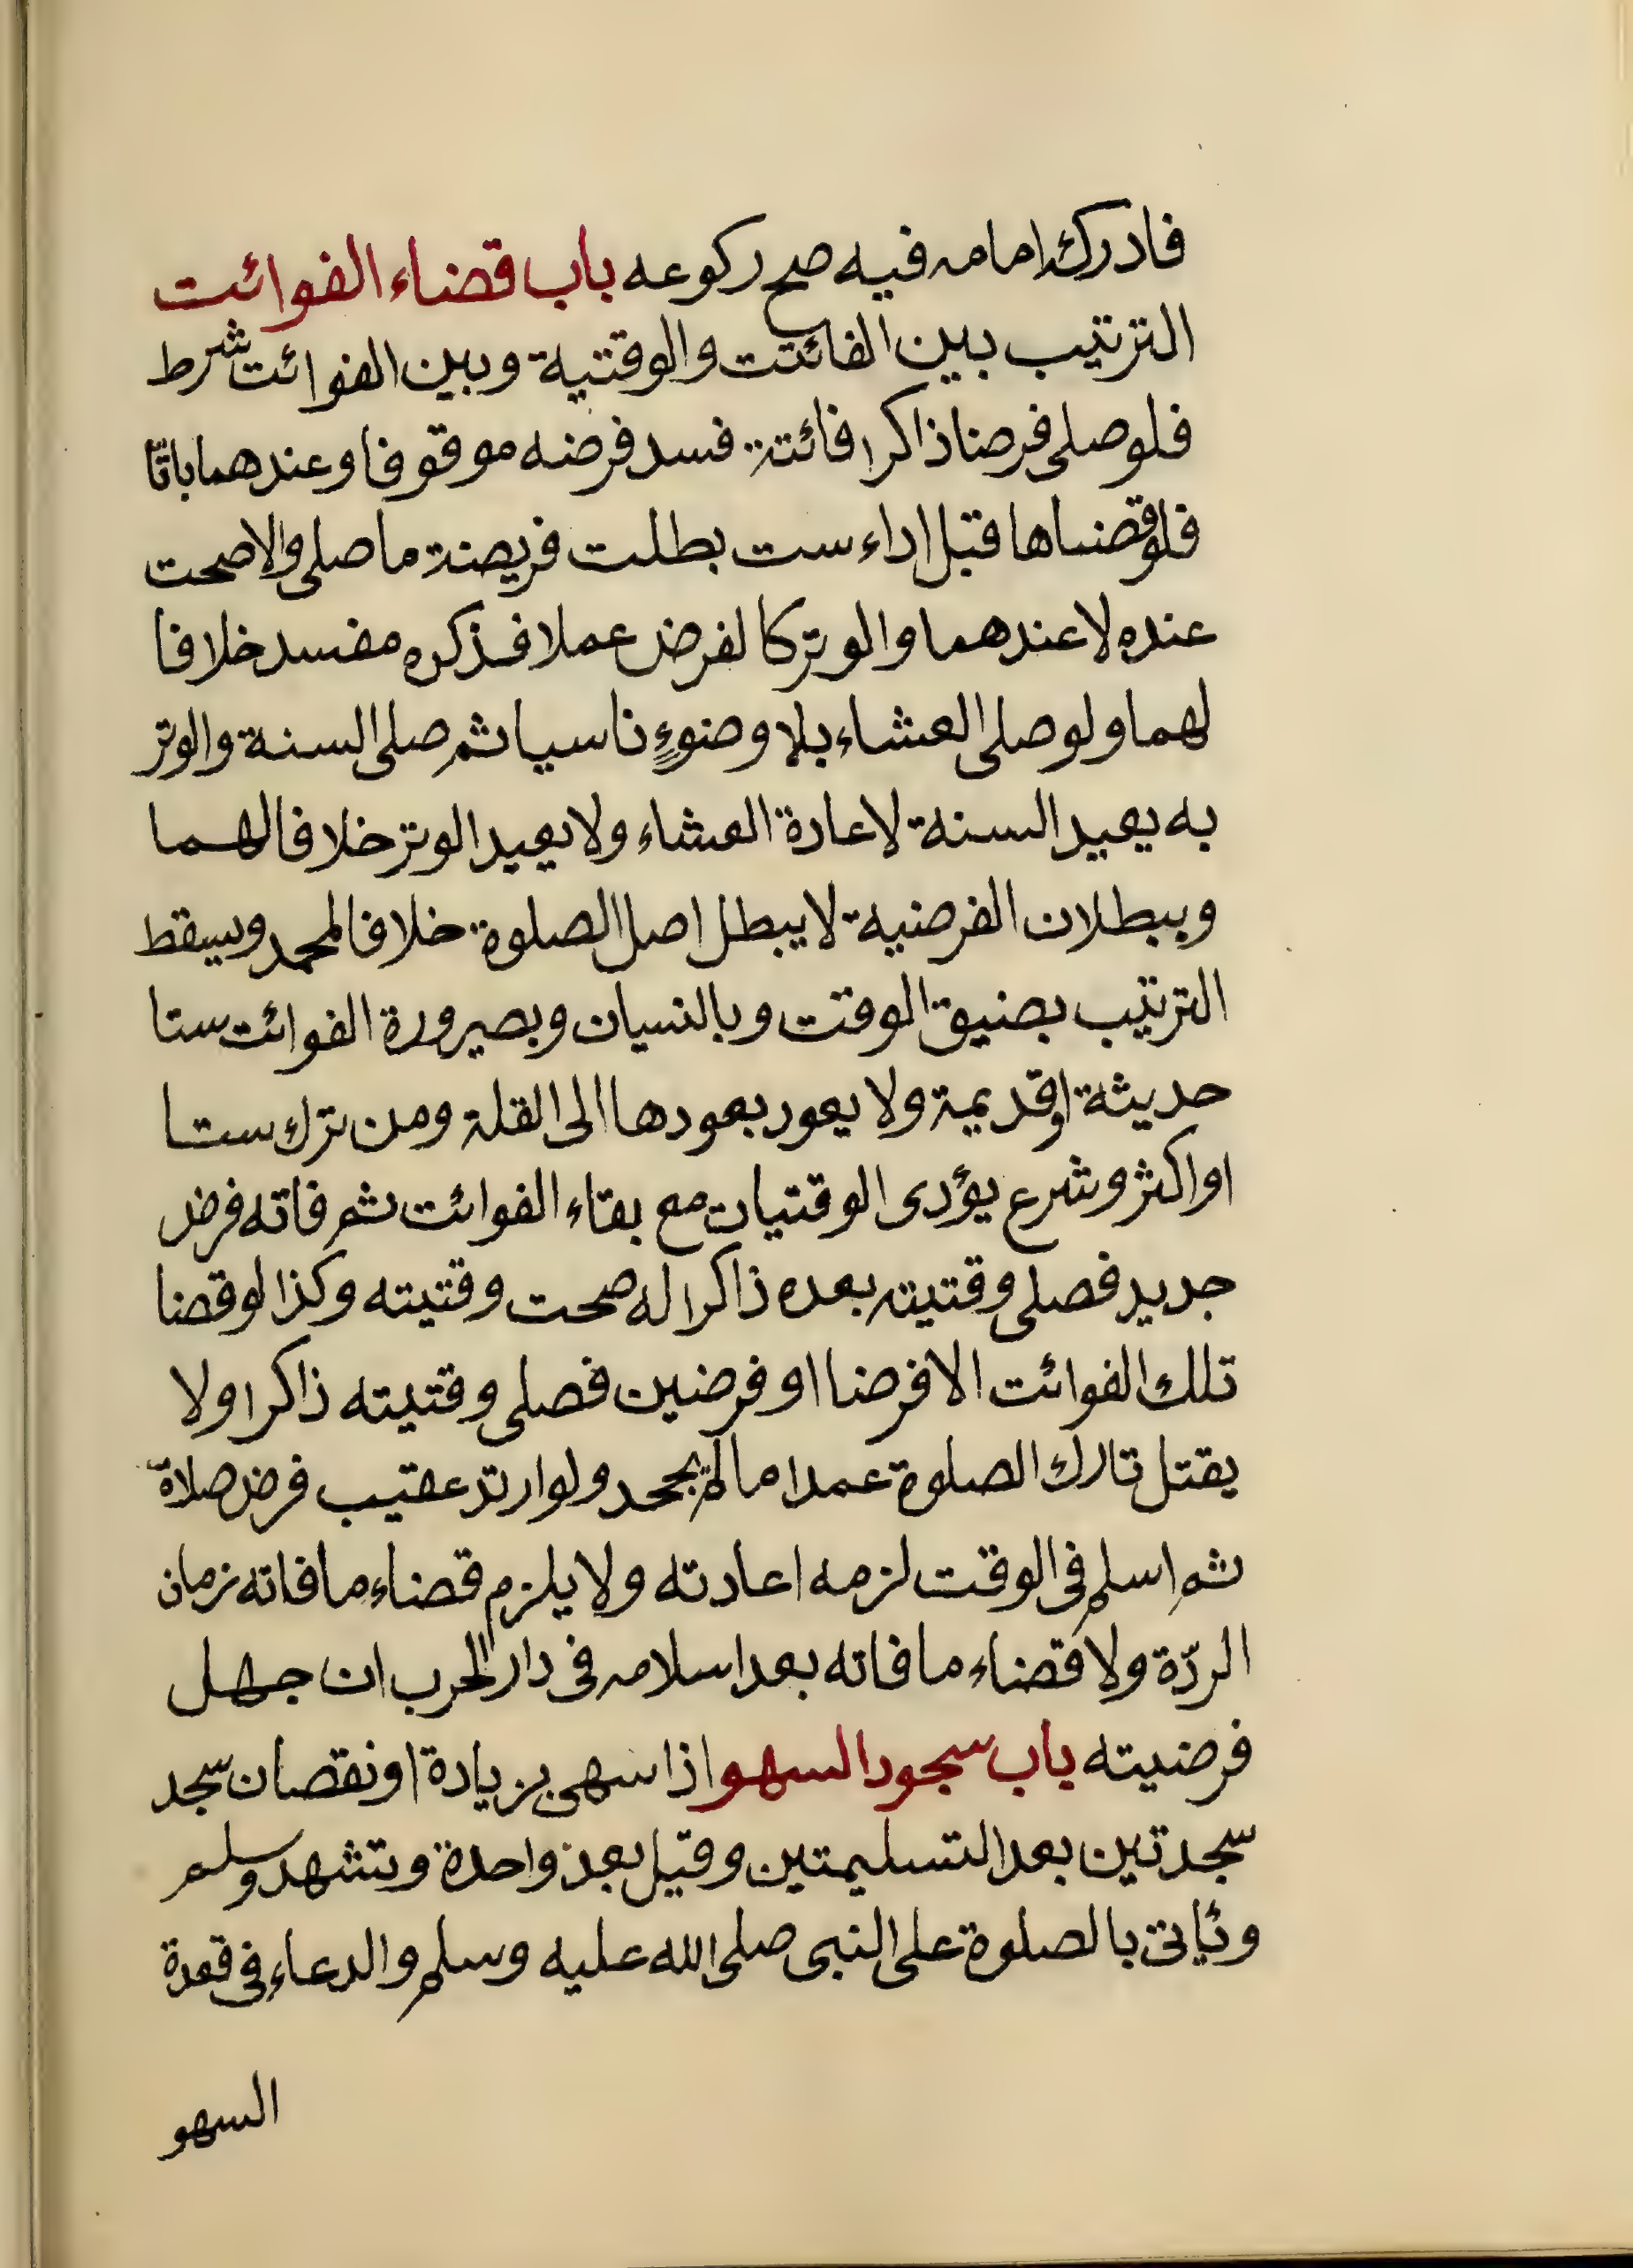 فادرك امامه فيه صح ركوعه باب قضاء الفوائت
الترتيب بين الفائتت والوقتية وبين الفوائت شرط
فلو صلى فرضا ذاكرا فائتة فسد فرضه موقوفا وعندهما باتا
فلو قضاها قبل اداء ست بطلت فريضة ما صلى والا صحت
عنده لا عندهما والوتر كالفرض عملا فذكره مفسد خلافا
لهما ولو صلى العشاء بلا وضوءٍ ناسيا ثم صلى السنة والوتر
به يعيد السنة لاعادة العشاء ولا يعيد الوتر خلافا لهما
وببطلان الفرضية لا يبطل اصل الصلوة خلافا لمحمد ويسقط
الترتيب بضيق الوقت وبالنسيان وبصيرورة الفوائت ستا
حديثة او قديمة ولا يعود بعودها الى القلة ومن ترك ستا
او اكثر وشرع يؤدى الوقتيات مع بقاء الفوائت ثم فاته فرض
جديد فصلى وقتيته بعده ذاكرا له صحت وقتيته وكذا لو قضا
تلك الفوائت الا فرضا او فرضين فصلى وقتيته ذاكرا ولا
يقتل تارك الصلوة عمدا ما لم يجحد ولو ارتد عقيب فرض صلاة
ثم اسلم فى الوقت لزمه اعادته ولا يلزم قضاء ما فاته زمان
الردّة ولا قضاء ما فاته بعد اسلامه فى دار الحرب ان جهل
فرضيته باب سجود السهو اذا سهى بزيادة او نقصان سجد
سجدتين بعد التسليمتين وقيل بعد واحدة وتشهد وسلم
ويأتى بالصلوة على النبى صلى الله عليه وسلم والدعاء فى قعدة
السهو